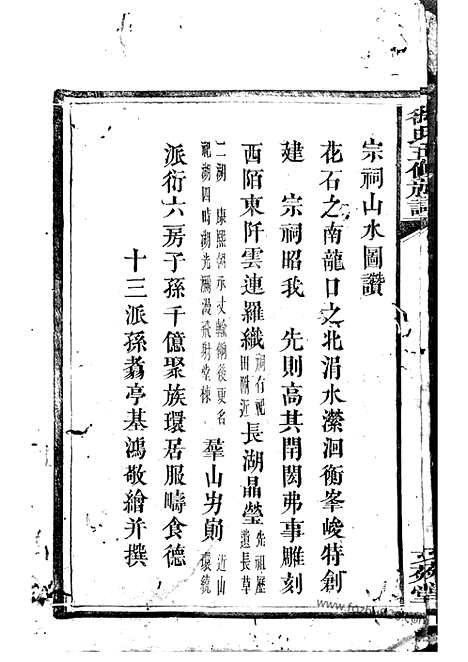 宗祠山水圖讚
花石之南龍口之北涓水濚洄衡峯峻特創
建　宗祠昭我　先則高其閈閎弗事雕刻
西陌東阡雲連羅織祠有祀田附近長湖晶瑩先祖歷遺長草
二湖　康熙　永丈　後更名祀湖四時湖光瀰漫飛射堂棟羣山屴崱近山環繞
派衍六房子孫千億聚族環居服疇食德
十三派孫翥亭基鴻敬繪并撰
氏五修族譜
堂